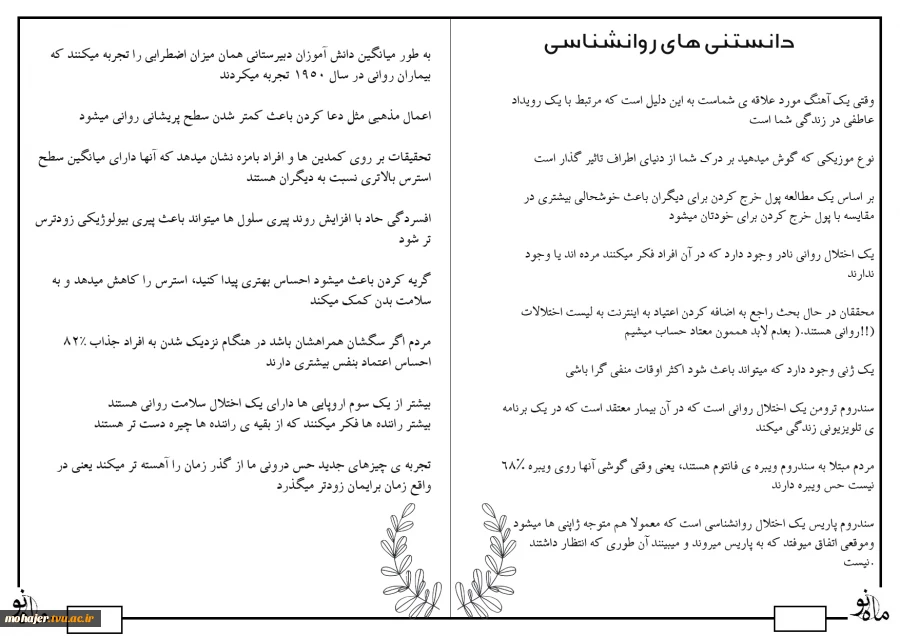 دانستنی های روانشناسی
وقتی یک آهنگ مورد علاقه ی شماست به این دلیل است که مرتبط با یک رویداد
عاطفی در زندگی شما است
نوع موزیکی که گوش میدهید بر درک شما از دنیای اطراف تاثیر گذار است
بر اساس یک مطالعه پول خرج کردن برای دیگران باعث خوشحالی بیشتری در
مقایسه با پول خرج کردن برای خودتان میشود
یک اختلال روانی نادر وجود دارد که در آن افراد فکر میکنند مرده اند یا وجود
ندارند
محققان در حال بحث راجع به اضافه کردن اعتیاد به اینترنت به لیست اختلالات
(!!روانی هستند.( بعدم لابد هممون معتاد حساب میشیم
یک ژنی وجود دارد که میتواند باعث شود اکثر اوقات منفی گرا باشی
سندروم ترومن یک اختلال روانی است که در آن بیمار معتقد است که در یک برنامه
ی تلویزیونی زندگی میکند
مردم مبتلا به سندروم ویبره ی فانتوم هستند، یعنی وقتی گوشی آنها روی ویبره ۶۸٪
نیست حس ویبره دارند
سندروم پاریس یک اختلال روانشناسی است که معمولا هم متوجه ژاپنی ها میشود
وموقعی اتفاق میوفتد که به پاریس میروند و میبینند آن طوری که انتظار داشتند
.نیست
به طور میانگین دانش آموزان دبیرستانی همان میزان اضطرابی را تجربه میکنند که
بیماران روانی در سال ۱۹۵۰ تجربه میکردند
اعمال مذهبی مثل دعا کردن باعث کمتر شدن سطح پریشانی روانی میشود
تحقیقات بر روی کمدین ها و افراد بامزه نشان میدهد که آنها دارای میانگین سطح
استرس بالاتری نسبت به دیگران هستند
افسردگی حاد با افزایش روند پیری سلول ها میتواند باعث پیری بیولوژیکی زودترس
تر شود
گریه کردن باعث میشود احساس بهتری پیدا کنید، استرس را کاهش میدهد و به
سلامت بدن کمک میکند
مردم اگر سگشان همراهشان باشد در هنگام نزدیک شدن به افراد جذاب ۸۲٪
احساس اعتماد بنفس بیشتری دارند
بیشتر از یک سوم اروپایی ها دارای یک اختلال سلامت روانی هستند
بیشتر راننده ها فکر میکنند که از بقیه ی راننده ها چیره دست تر هستند
تجربه ی چیزهای جدید حس درونی ما از گذر زمان را آهسته تر میکند یعنی در
واقع زمان برایمان زودتر میگذرد
ماه نو
mohajer.tvu.ac.ir